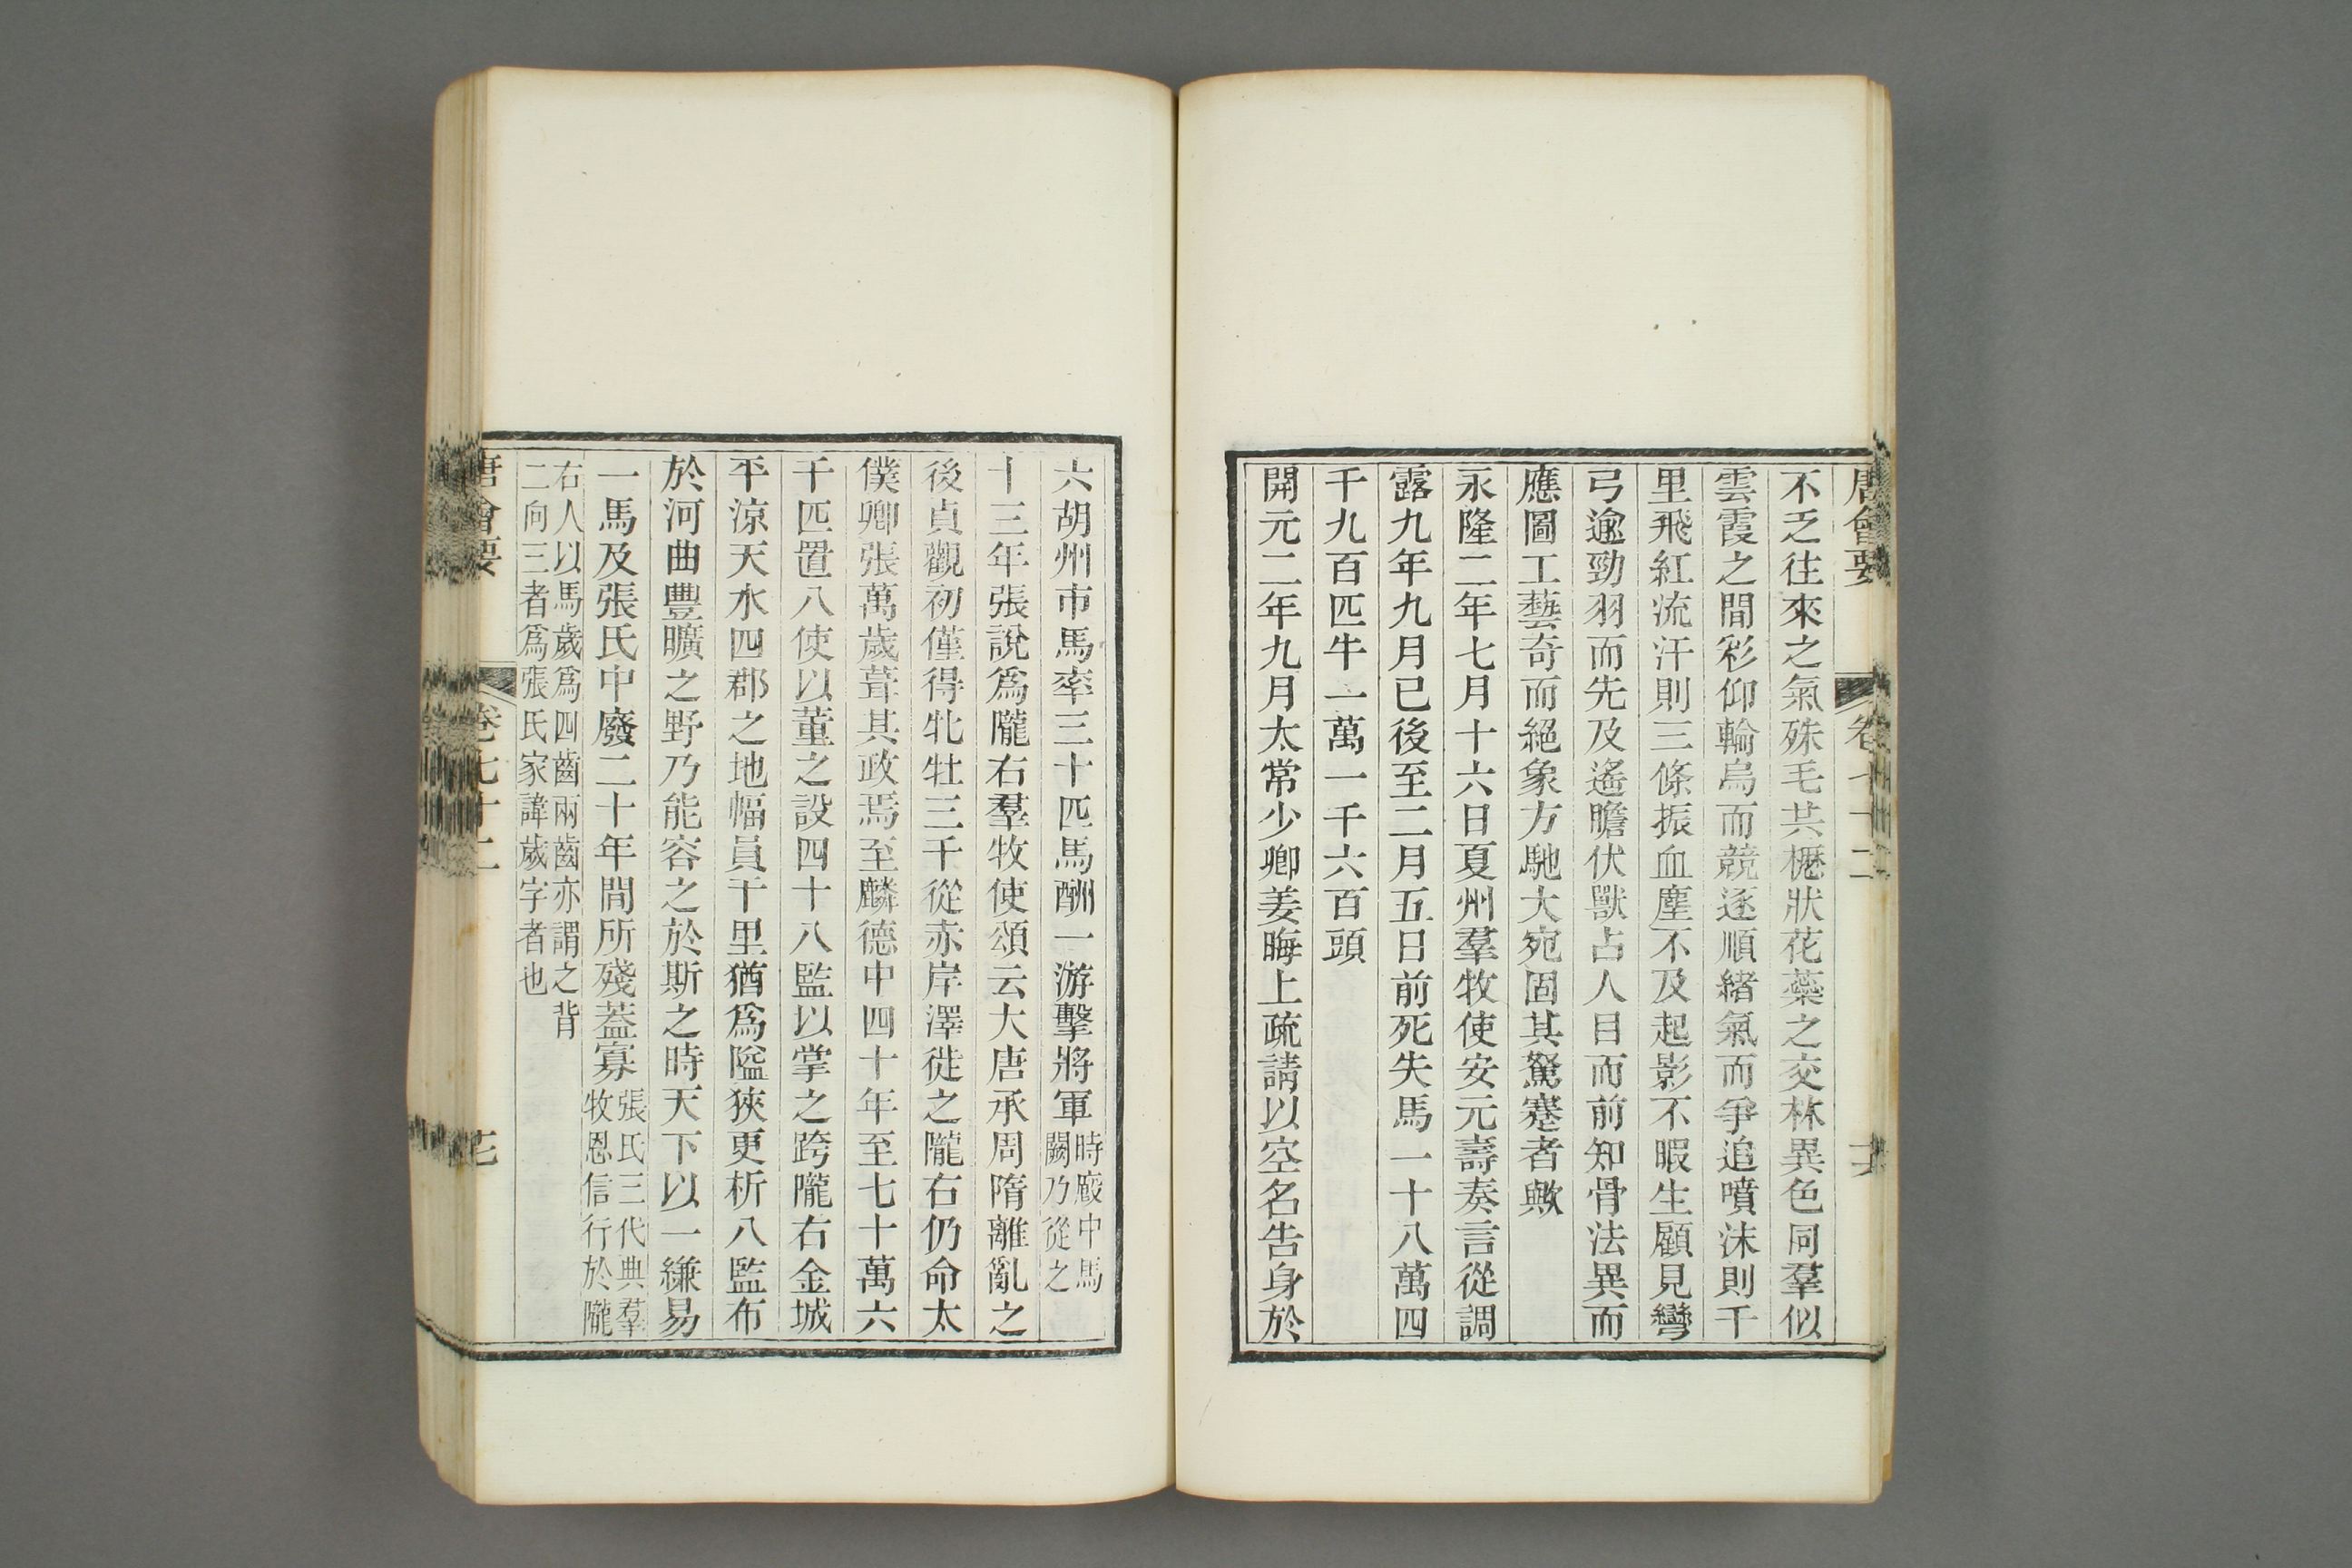 唐會要 卷七十二
不乏往來之氣殊毛共櫪狀花蘂之交林異色同羣似
雲霞之間彩仰輪烏而競逐順緒氣而爭追噴沫則千
里飛紅流汗則三條振血塵不及起影不暇生顧見彎
弓逾勁羽而先及遙瞻伏獸占人目而前知骨法異而
應圖工藝奇而絕象方馳大宛固其駑蹇者歟
永隆二年七月十六日夏州羣牧使安元壽奏言從調
露九年九月已後至二月五日前死失馬一十八萬四
千九百匹牛一萬一千六百頭
開元二年九月太常少卿姜晦上疏請以空名告身於
六胡州市馬率三十匹馬酬一游擊將軍時廄中馬闕乃從之
十三年張說爲隴右羣牧使頌云大唐承周隋離亂之
後貞觀初僅得牝牡三千從赤岸澤徙之隴右仍命太
僕卿張萬歲葺其政焉至麟德中四十年至七十萬六
千匹置八使以董之設四十八監以掌之跨隴右金城
平涼天水四郡之地幅員千里猶爲隘狹更析八監布
於河曲豐曠之野乃能容之於斯之時天下以一縑易
一馬及張氏中廢二十年間所殘蓋寡張氏三代典羣牧恩信行於隴
右人以馬歲爲四齒兩齒亦謂之背
二向三者爲張氏家諱歲字者也
唐會要 卷七十二